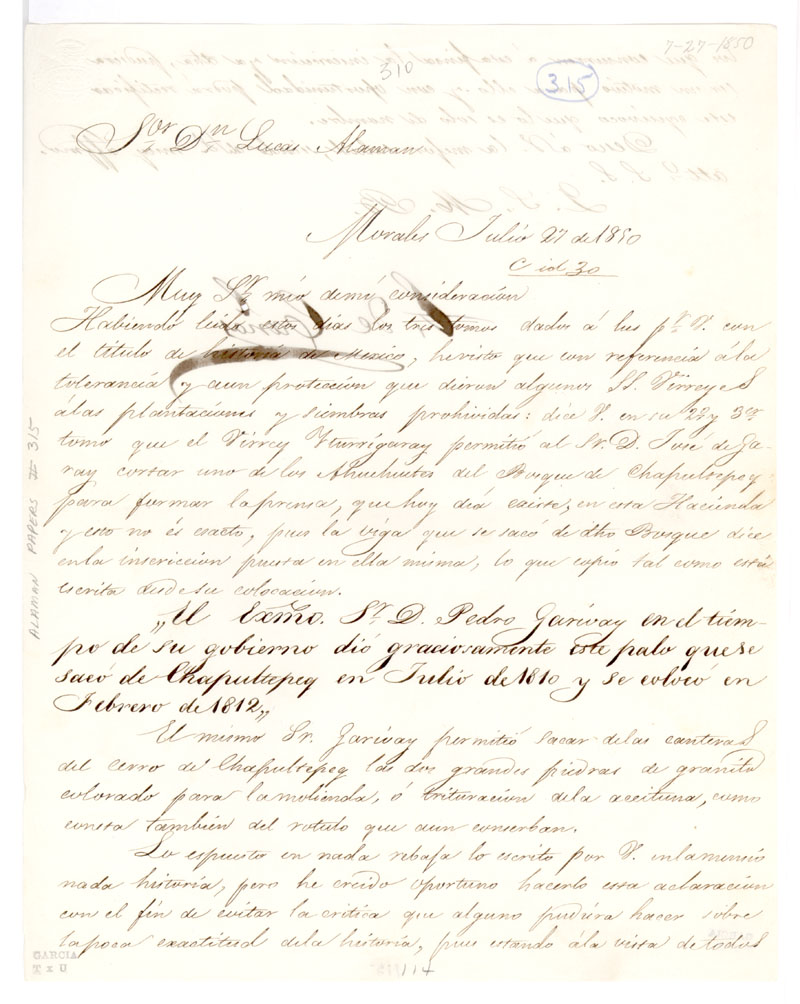 7-27-1850
310
315
Sor. Dn. Lucas Alaman
Morales Julio 27 de 1850
C id 30
Muy Sr. mio de mi consideracion
Habiendo leido estos dias los tres tomos dados á lus pr. V. con
el titulo de historia de Mexico, he visto que con referencia á la
tolerancia y aun proteccion que dieron algunos SS. Virreyes
á las plantaciones y siembras prohividas: dice V. en su 2º y 3er.
tomo que el Virrey Yturrigaray permitió al Sr. D. José de Ga-
ray cortar uno de los Ahuehuetes del Bosque de Chapultepeq
para formar la prensa, que hoy dia existe, en esta Hacienda
y esto no és esacto, pues la viga que se sacó de dho Bosque dice
en la inscriccion puesta en ella misma, lo que copio tal como está
escrita desde su colocacion.
„El Exmo. Sr. D. Pedro Garivay en el tiem-
po de su gobierno dió graciosamente este palo que se
sacó de Chapultepeq en Julio de 1810 y se colocó en
Febrero de 1812„
El mismo Sr. Garivay permitió sacar de las canteras
del cerro de Chapultepeq las dos grandes piedras de granito
colorado para la molienda, ó trituracion de la aceituna, como
consta tambien del rotulo que aun conserban.
Lo espuesto en nada rebaja lo escrito por V. en la mensio
nada historia, pero he creido oportuno hacerle esta aclaracion
con el fin de evitar la critica que alguno pudiera hacer sobre
la poca exactitud de la historia, pues estando á la vista de todos
ALAMAN PAPERS II 315
GARCIA
T x U
114